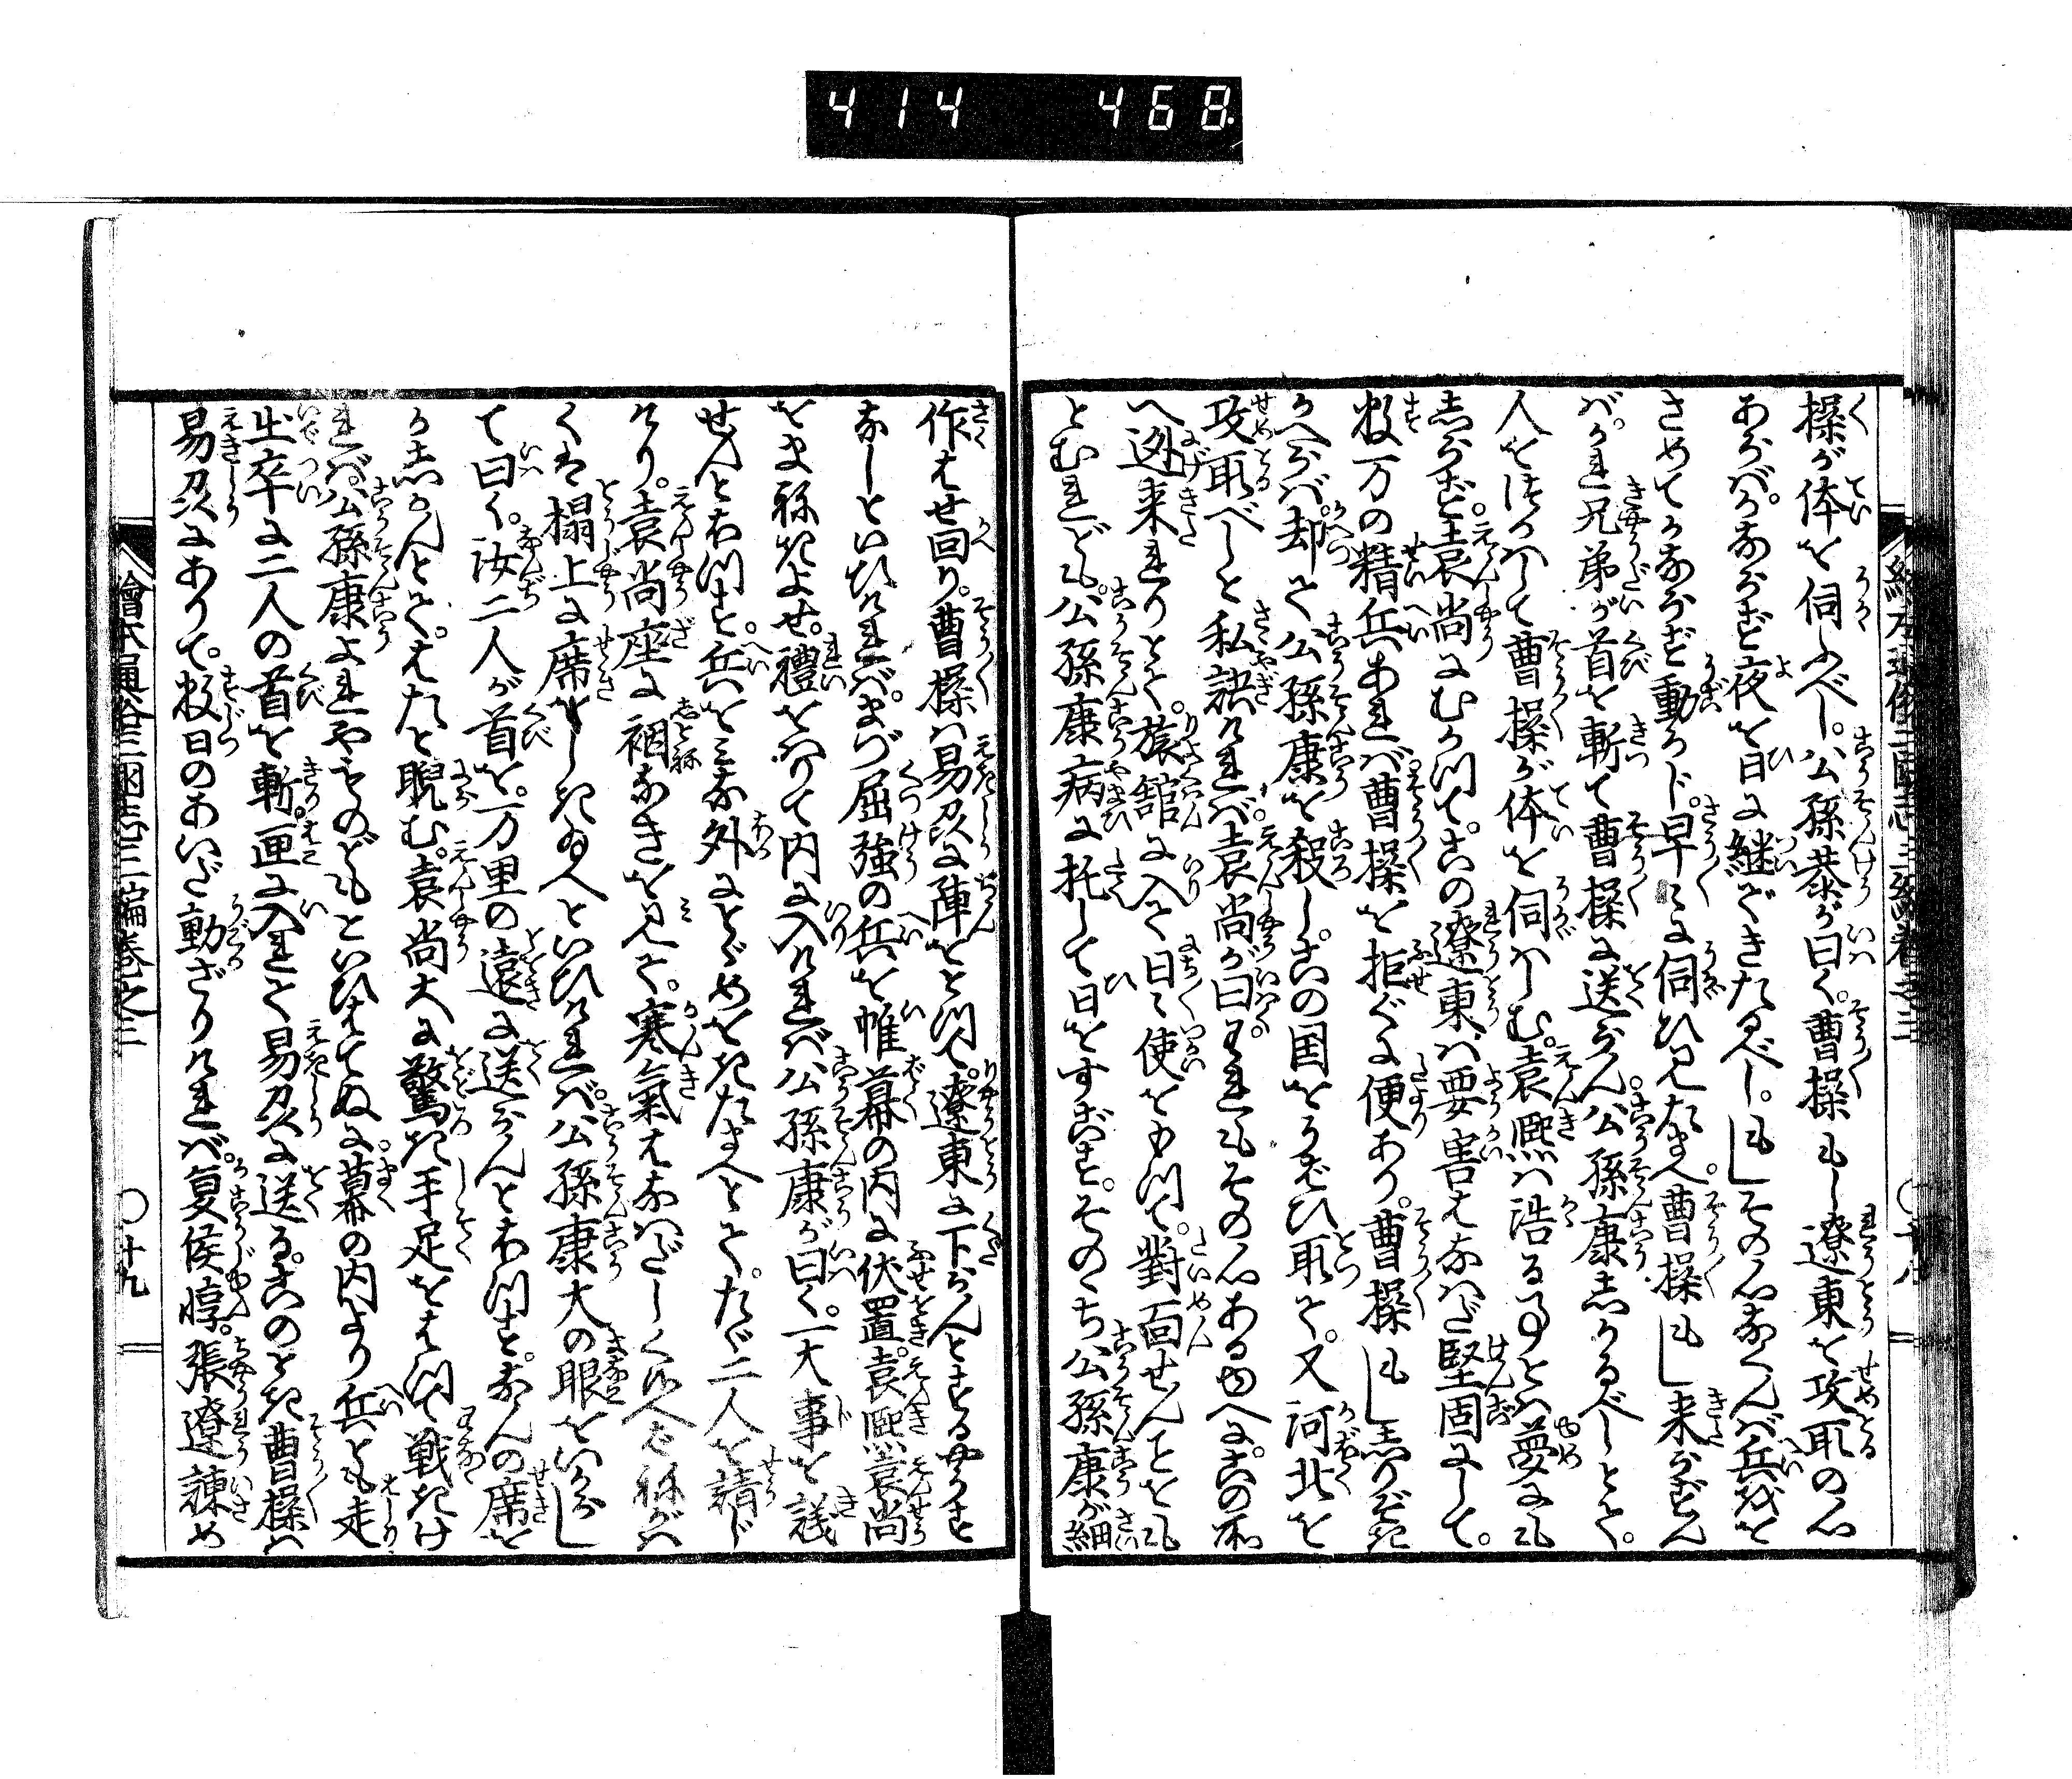 414 468
操が体を伺ふべし。公孫恭が曰く。曹操もし遼東を攻取の心
あらバかならず夜を日に継できたるべし。もしその心なくんバ兵を
さめてかならず動かじ。早々に伺ひ見たまへ。曹操もし来らずん
バ。かれ兄弟が首を斬て曹操に送らん。公孫康しかるべしとて。
人をつかハして曹操が体を伺ハしむ。袁熙ハ浩る事とハ夢にも
しらず。袁尚にむかつて。この遼東ハ要害はなハだ堅固にして。
数万の精兵あれバ曹操を拒ぐに便あり。曹操もししりぞき
かへらバ。却て公孫康を殺し。この国をうばひ取て。又河北を
攻取べしと私語けれバ。袁尚が曰。われもその心あるゆへに。この所
へ迯来れりとて。旅館に入て日々使をもつて。對面せんことを
とむれども。公孫康病に托して日をすごす。そのゝち公孫康が細
作はせ回り。曹操ハ易州に陣をとつて。遼東に下らんとするやうす
なしといひけれバ。まづ屈強の兵を帷幕の内に伏置。袁熙袁尚
をまねきよせ。禮をハりて内に入けれバ公孫康が曰く。一大事を議
せんとおつす。兵をミな外にとゞめをきたまへとて。たゞ二人を請じ
けり。袁尚座に裀なきを見て。寒氣はなハだしく候へバねがハ
くハ榻上に席をしきあへといひけれバ。公孫康大の眼をいからし
て曰く。汝二人が首を。万里の遠に送らんとおつす。なんの席を
かしかんとて。はたと睨む。袁尚大に驚き手足をはつて戦きけ
れバ。公孫康よれやものどもといひもはてぬに。幕の内より兵ども走
出卒に二人の首を斬。匣に入れて易州に送る。このとき曹操ハ
易州にありて。数日のあいだ動ざりけれバ。夏侯惇。張遼諫め
繪本通俗三国志三編巻之三 〇十九